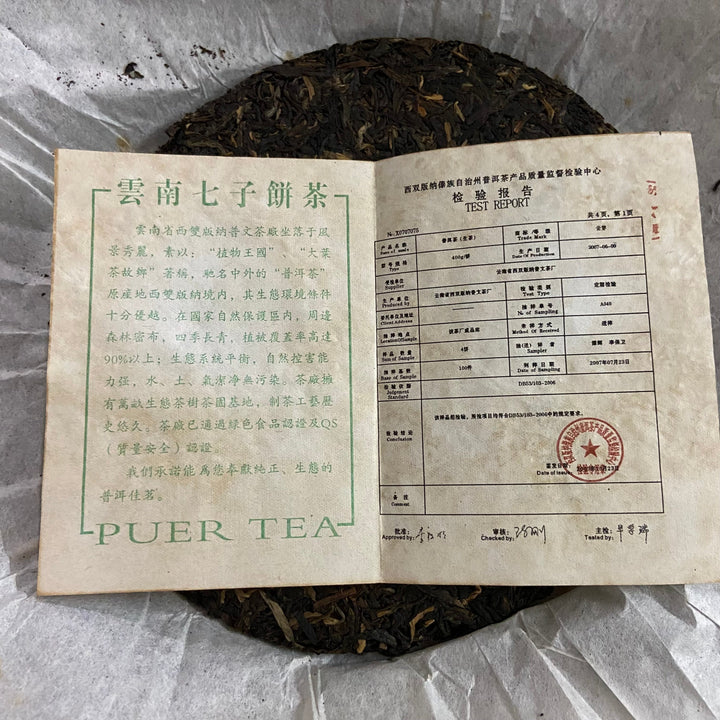 雲南七子餅茶
雲南省西雙版納普文茶廠坐落于風
景秀麗，素以：“植物王國”、“大葉
茶故鄉”著稱，馳名中外的“普洱茶”
原産地西雙版納境内，其生態環境條件
十分優越。在國家自然保護區内，周邊
森林密布，四季長青，植被覆蓋率高達
90%以上；生態系統平衡，自然控害能
力强，水、土、氣潔净無污染。茶廠擁
有萬畝生態茶樹茶園基地，制茶工藝歷
史悠久。茶廠已通過綠色食品認證及QS
（質量安全）認證。
我們承諾能爲您奉獻純正、生態的
普洱佳茗。
PUER TEA
西双版纳傣族自治州普洱茶产品质量监督检验中心
检验报告
TEST REPORT
№ X0707075
共 4 页，第 1 页
产品名称 普洱茶（生茶） 商标/等级 云梦
Name of sample Trade Mark
型号规格 400g/饼 生产日期 2007-06-09
Type Date Of Production
受检单位 云南省西双版纳普文茶厂
Supplier
生产单位 云南省西双版纳普文茶厂 检验类别 定期检验
Produced by Test Type
委托单位及地址 抽样单号 A049
Client Address № of Sampling
抽样地点 该茶厂成品库 来样方式 送样
Location of Sample Method of Received
样品数量 4饼 抽(送)样者 李保卫
Sum of Sample Sampler
抽样基数 100件 到样日期 2007年07月23日
Base of Sample Date of Sampling
检验依据 DB53/103-2006
Judgement Standard
检验结论 该样品经检验，所检项目均符合DB53/103-2006中的规定要求。
Conclusion
签发日期：
Date of issue:
备注
Comment
批准： 审核： 主检：
Approved by: Checked by: Tested by: